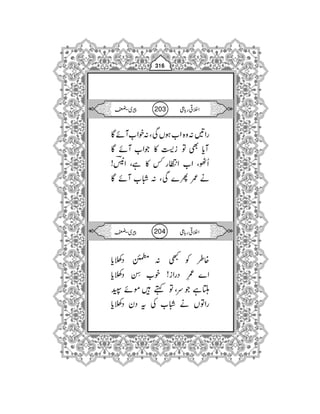 316
اخلاقی رباعی 203 پیری۔ضعف
راتیں نہ وہ اب ہوں گی، نہ خواب آئے گا
آیا بھی تو زیست کا جواب آئے گا
اُٹھو، اب انتظار کس کا ہے، انیسؔ!
نے عمر پھرے گی، نہ شباب آئے گا
اخلاقی رباعی 204 پیری۔ضعف
خاطر کو کبھی نہ مطمئن دکھلایا
اے عمرِ دراز! خوب سِن دکھلایا
ہلتا ہے جو سر، تو کہتے ہیں موئے سپید
راتوں نے شباب کی یہ دن دکھلایا